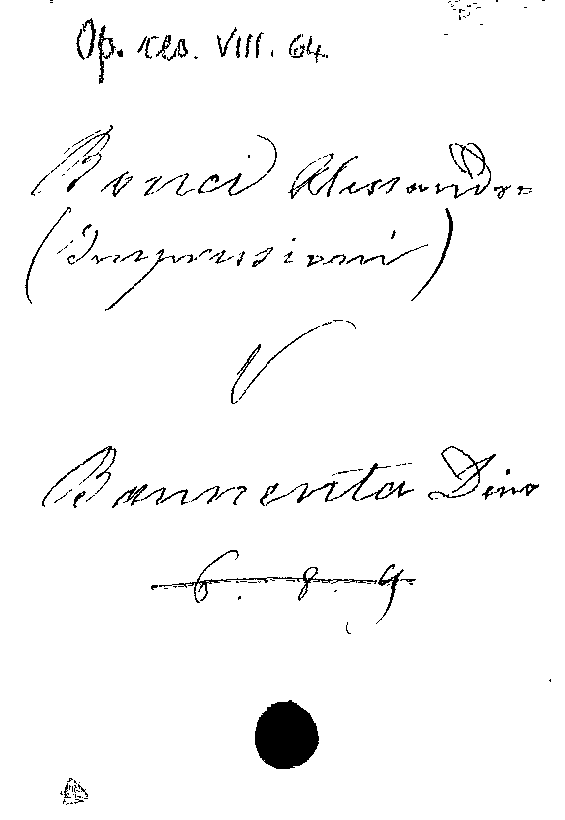 Op. res. VIII. 64.
Bonci Alessandro
(Impressioni)
V
Bonmenta Dino
6. 8. 9